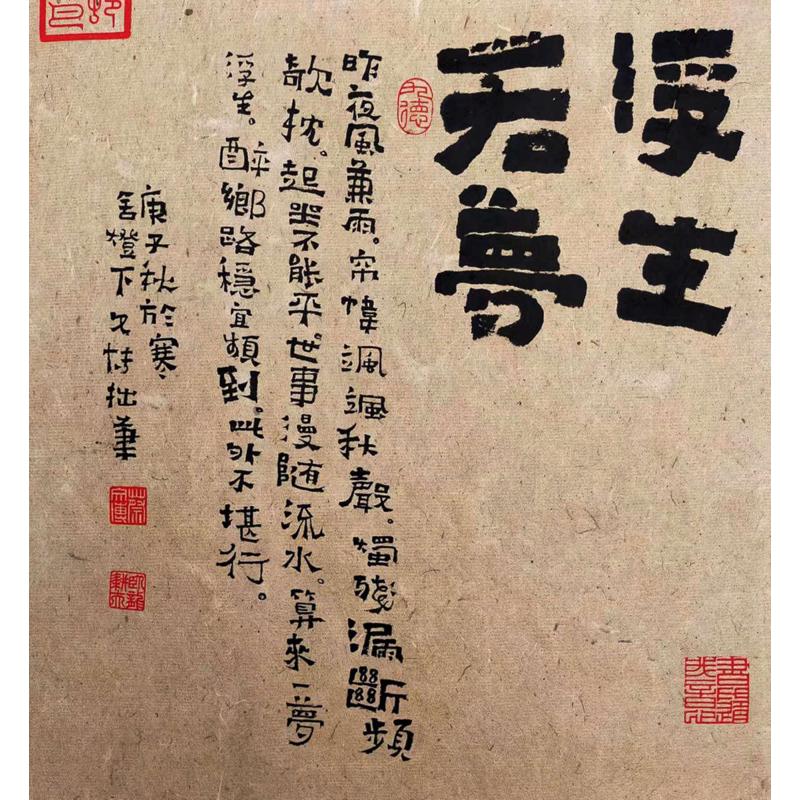 浮生
若夢
昨夜風兼雨。帘幃颯颯秋聲。燭殘漏斷頻
欹枕。起坐不能平。世事漫随流水。算來一夢
浮生。醉鄉路穩宜頻到。此外不堪行。
庚子秋於寒
舍燈下拙筆